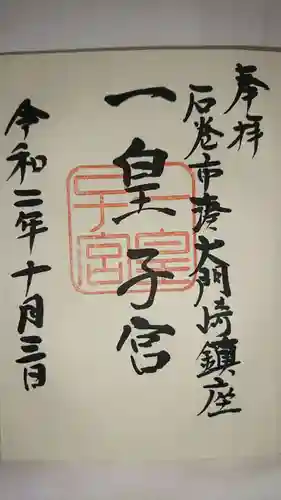 奉拝
石巻市湊大門崎鎮座
一皇子宮
一皇子宮
令和二年十月三日